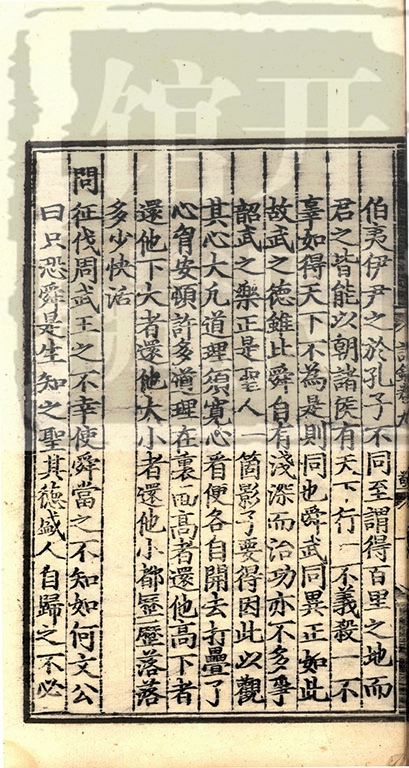 伯夷伊尹之於孔子不同至謂得百里之地而
君之皆能以朝諸侯有天下行一不義殺一不
辜如得天下不為是則同也舜武同異正如此
故武之德雖比舜自有淺深而治功亦不多爭
韶武之樂正是聖人一箇影子要得因此以觀
其心大凡道理須寬心看便各自開去打疊了
心胷安頓許多道理在裏面高者還他高下者
還他下大者還他大小者還他小都歷歷落落
多少快活
問征伐周武王之不幸使舜當之不知如何文公
曰只恐舜是生知之聖其德盛人自歸之不必